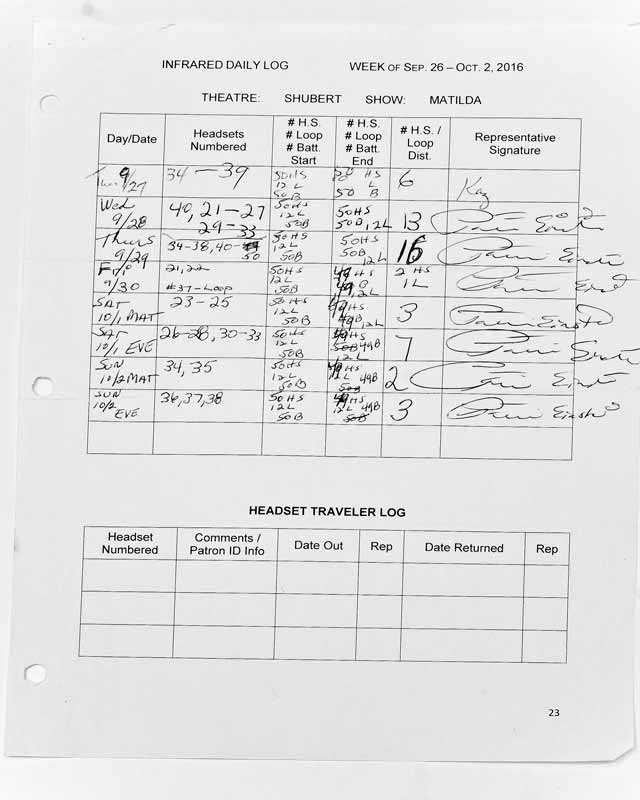 INFRARED DAILY LOG WEEK OF SEP. 26 – OCT. 2, 2016
THEATRE: SHUBERT SHOW: MATILDA
Day/Date
Headsets
Numbered
# H.S.
# Loop
# Batt.
Start
# H.S.
# Loop
# Batt.
End
# H.S. /
Loop
Dist.
Representative
Signature
Tues 9/27
34 – 39
50 HS
12 L
50 B
HS
L
50 B
6
Kay
Wed
9/28
40, 21 – 27
29 – 33
50 HS
12 L
50B
50 HS
50B, 12L
13
Thurs
9/29
34-38, 40-
50
50 HS
12 L
50B
50HS
50B
12L
16
Fri
9/30
21, 22
#37-Loop
50HS
12L
50B
49 HS
49 B
12L
2 HS
1L
SAT
10/1 MAT
23 – 25
50 HS
12L
50B
49 HS
49B 12L
3
SAT
10/1 EVE
26-28, 30-33
50 HS
12L
50B
49 HS
50B 49B
12L
7
SUN
10/2 MAT
34, 35
50HS
12L
50B
HS
12L 49B
50B
2
SUN
10/2 EVE
36, 37, 38
50HS
12L
50B
49 HS
12L 49B
50B
3
HEADSET TRAVELER LOG
Headset
Numbered
Comments /
Patron ID Info
Date Out
Rep
Date Returned
Rep
23